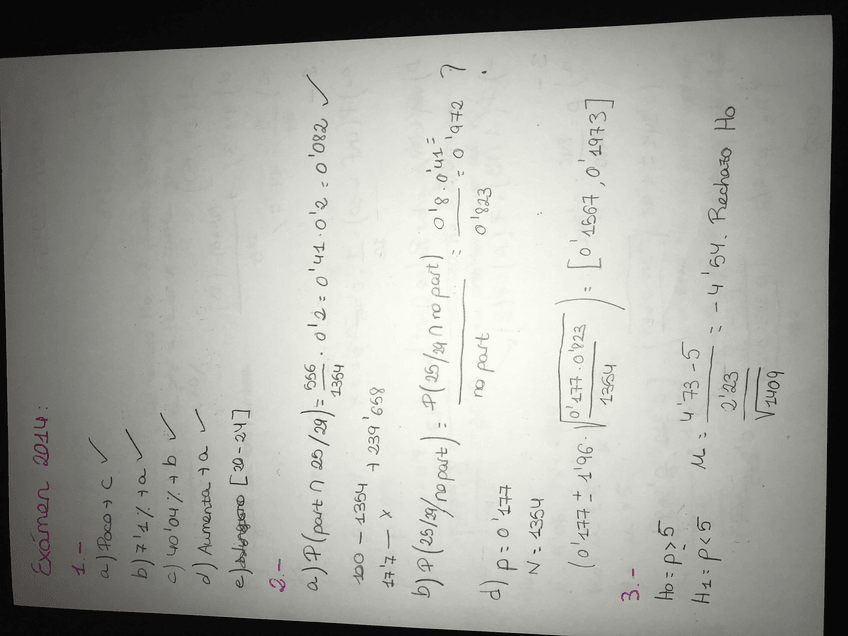 Exámen 2014:
1.-
a) Poco → c ✓
b) 7'1% → a ✓
c) 40'04% → b ✓
d) Aumenta → a ✓
e) [20-24]
2.-
a) P(part ∩ 25/29) = 556/1354 · 0'2 = 0'41 · 0'2 = 0'082 ✓
100 — 1354 → 239'658
17'7 — x
b) P(25/29/no part) = P(25/29 ∩ no part)/no part = 0'8 · 0'41/0'823 = 0'972 ?
d) p = 0'177
N = 1354
(0'177 ± 1'96 · √(0'177 · 0'823/1354)) = [0'1567, 0'1973]
3.-
H0 = p ≥ 5
H1 = p < 5
μ = (4'73 - 5)/(2'23/√1409) = -4'54. Rechazo H0